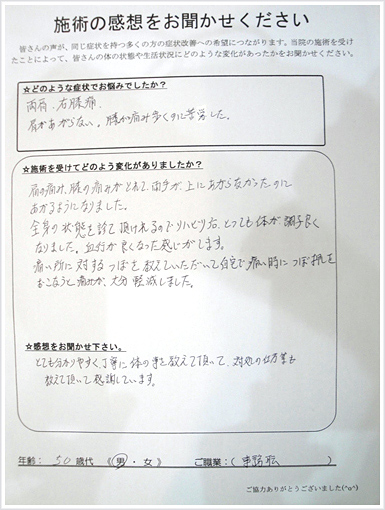 施術の感想をお聞かせください
皆さんの声が、同じ症状を持つ多くの方の症状改善への希望につながります。当院の施術を受け
たことによって、皆さんの体の状態や生活状況にどのような変化があったかをお聞かせください。
☆どのような症状でお悩みでしたか?
両肩、右膝痛、
肩があがらない。膝が痛み歩くのに苦労した。
☆施術を受けてどのよう変化がありましたか?
肩の痛み、膝の痛みがとれて、両手が上にあがらなかったのに
あがるようになりました。
全身の状態を診て頂けれるのでリハビリ後、とっても体が調子良く
なりました。血行が良くなった感じがします。
痛い所に対するつぼを教えていただいて自宅で痛い時につぼ押しを
おこなうと痛みが大分軽減しました。
☆感想をお聞かせ下さい。
とても分かりやすく、丁寧に体の事を教えて頂いて、対処の仕方等も
教えて頂いて感謝しています。
年齢: 50 歳代 《男・女》 ご職業:( 事務 )
ご協力ありがとうございました(^o^)